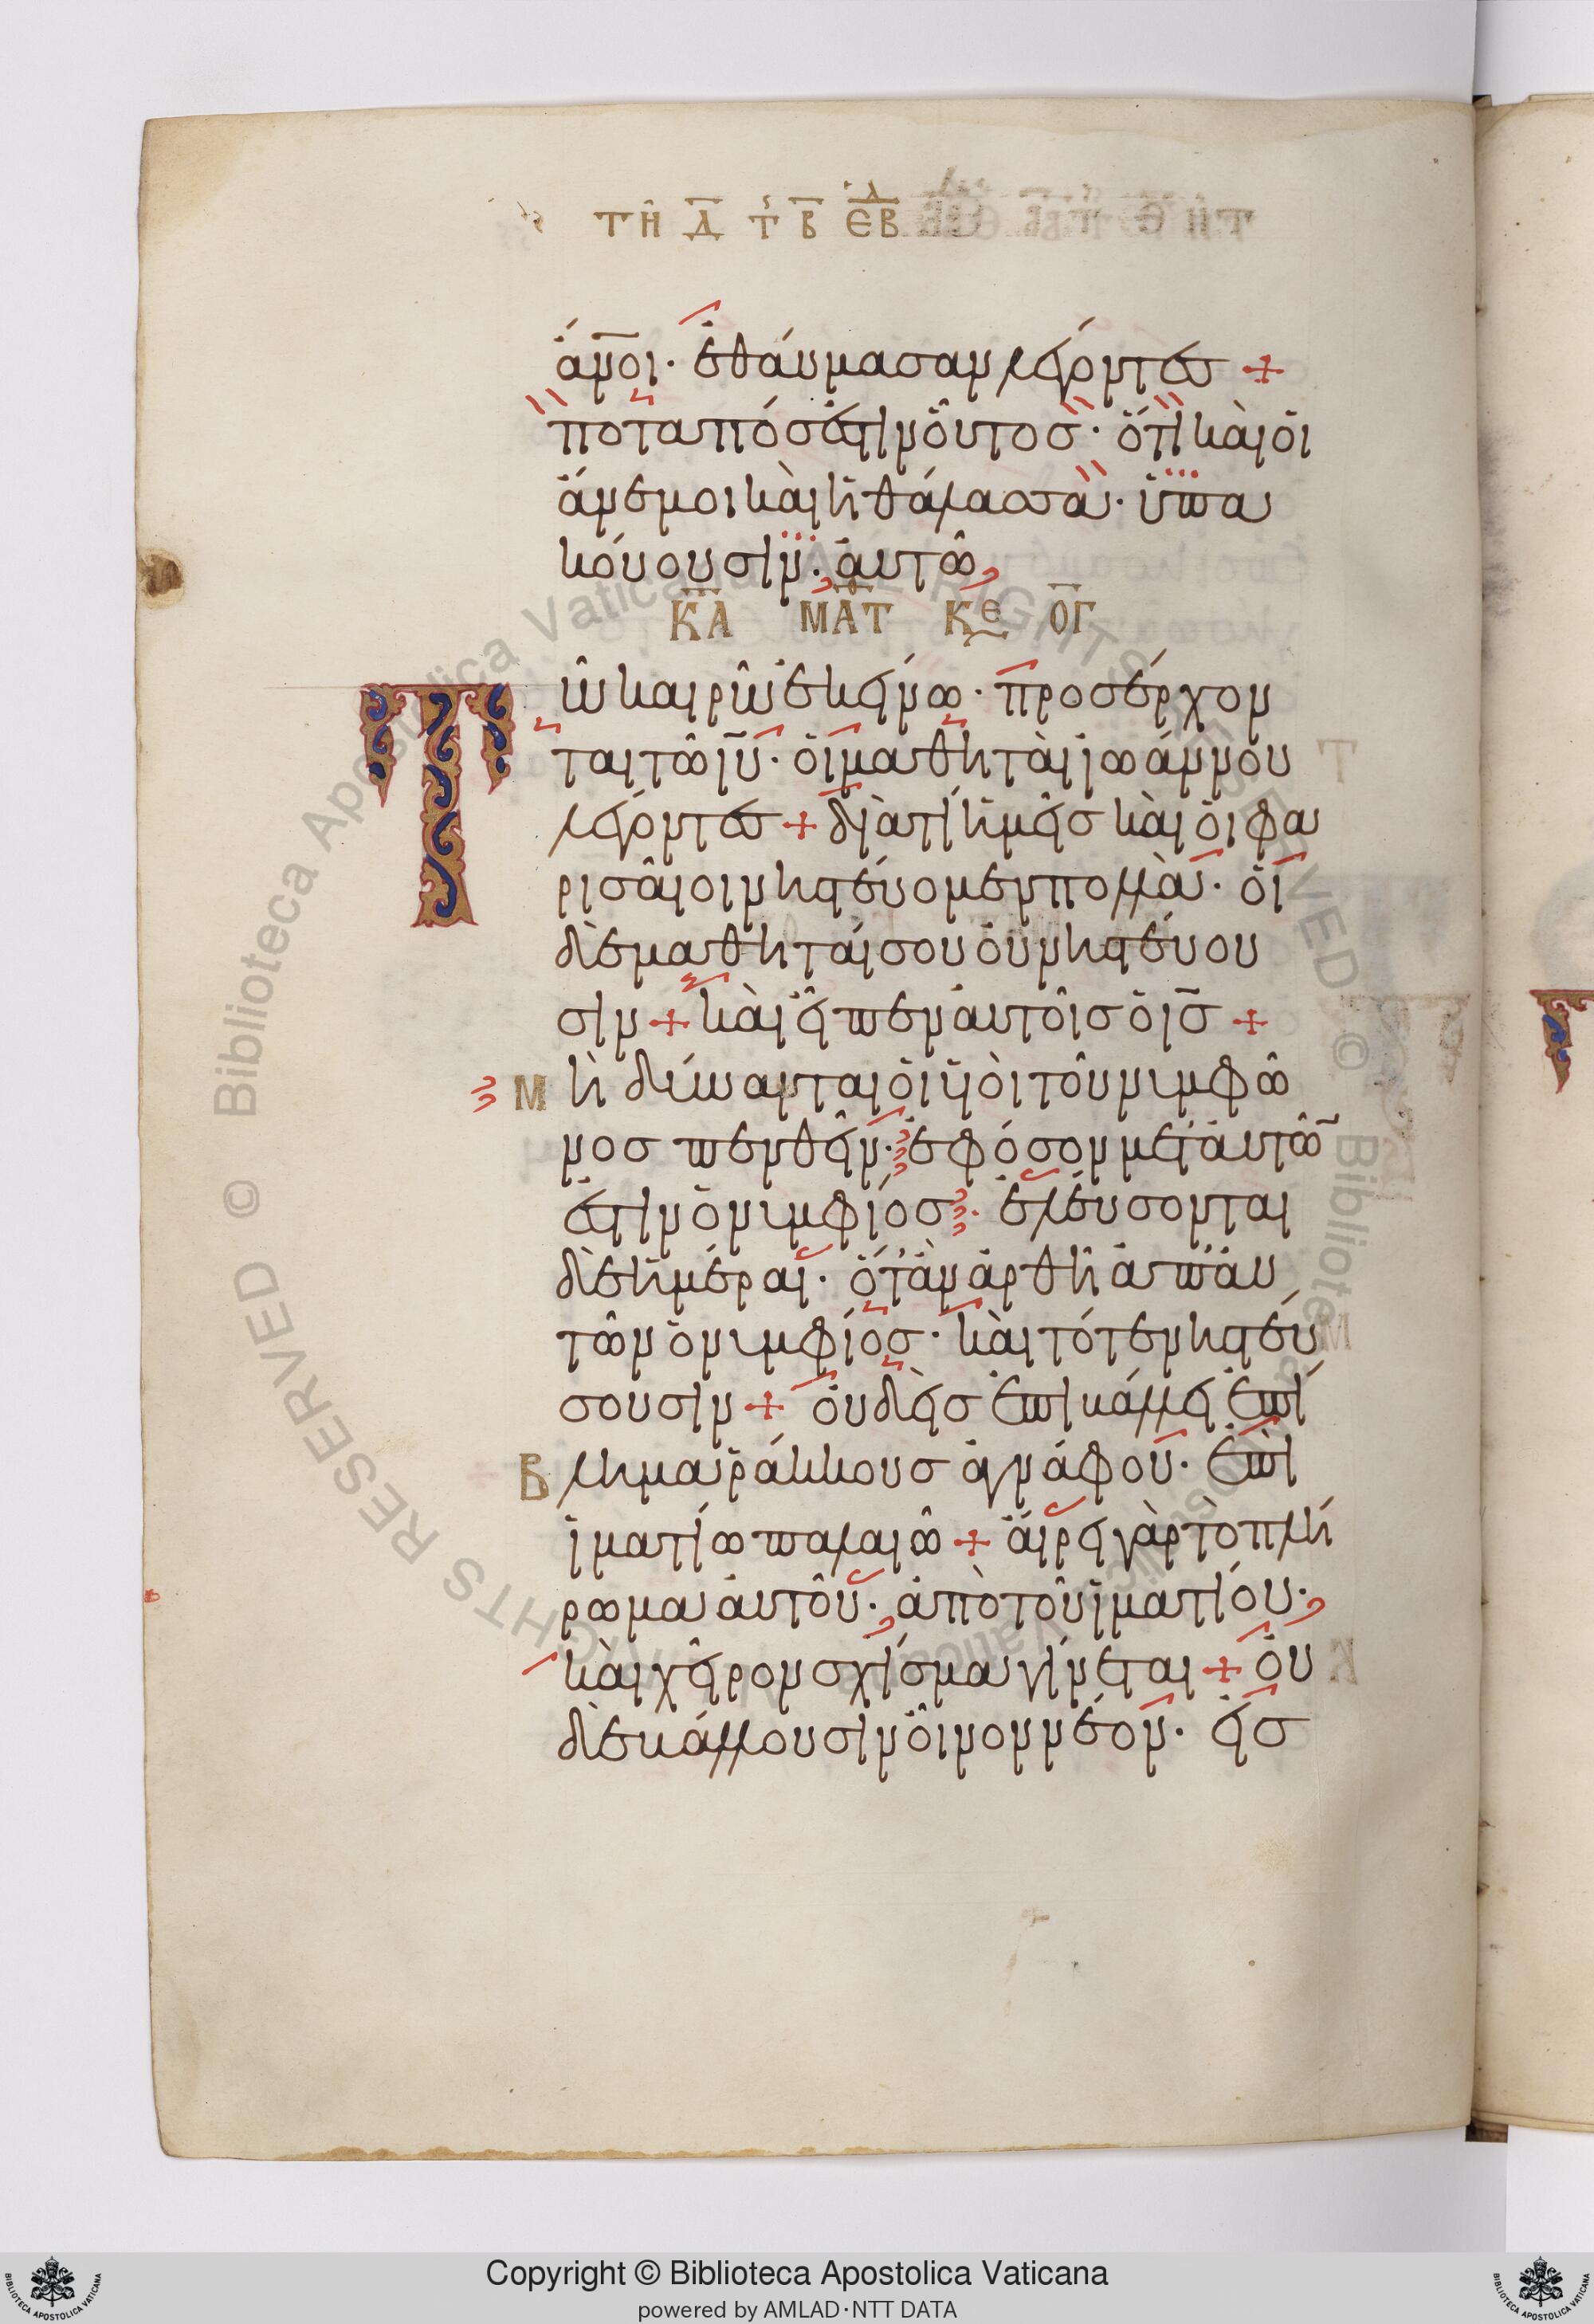 ΤΗ Δ Τ Β ΕΒΔ
ἄν̅οι· ἐθαύμασαν λέγοντεσ +
ποταπόσ ἐστιν οὗτοσ· ὅτι καὶ οἱ
ἄνεμοι καὶ ἡ θάλασσα· ὑπα
κούουσιν· αὐτῶ
Κ̅Α̅ ΜΑΤ ΚΕ ΟΓ
Τῶ καιρῶ ἐκείνω· προσέρχον
ται τῶ ἰ̅υ̅· οἱ μαθηταὶ ἰωάννου
λέγοντεσ + διὰτί ἡμεῖσ καὶ οἱ φα
ρισαῖοι νηστεύομεν πολλὰ· οἱ
δὲ μαθηταί σου οὐ νηστεύου
σιν + καὶ εἶπεν αὐτοῖσ ὁ ἰ̅σ̅ +
Μὴ δύνανται οἱ ὑιοὶ τοῦ νυμφῶ
νοσ πενθεῖν· ἐφόσον μετ' αὐτῶ̅
ἐστιν ὁ νυμφίοσ· ἐλεύσονται
δὲ ἡμέραι· ὅτ' ἂν ἀρθῆ ἀπ' αὐ
τῶν ὁ νυμφίοσ· καὶ τότε νηστεύ
σουσιν + οὐδεὶσ ἐπικάλλει ἐπί
Βλημα ῥάκκουσ ἀγνάφου· ἐπὶ
ἱματίω παλαιῶ + αἴρει γὰρ τὸ πλή
ρωμα αὐτοῦ· ἀπὸ τοῦ ἱματίου·
καὶ χεῖρον σχίσμα γίνεται + οὐ
δὲ κάλλουσιν οἶνον νέον· εἰσ
© Biblioteca Apostolica Vaticana ALL RIGHTS RESERVED
© Biblioteca Apostolica Vaticana ALL RIGHTS RESERVED
Copyright © Biblioteca Apostolica Vaticana
powered by AMLAD·NTT DATA
BIBLIOTECA APOSTOLICA VATICANA
BIBLIOTECA APOSTOLICA VATICANA